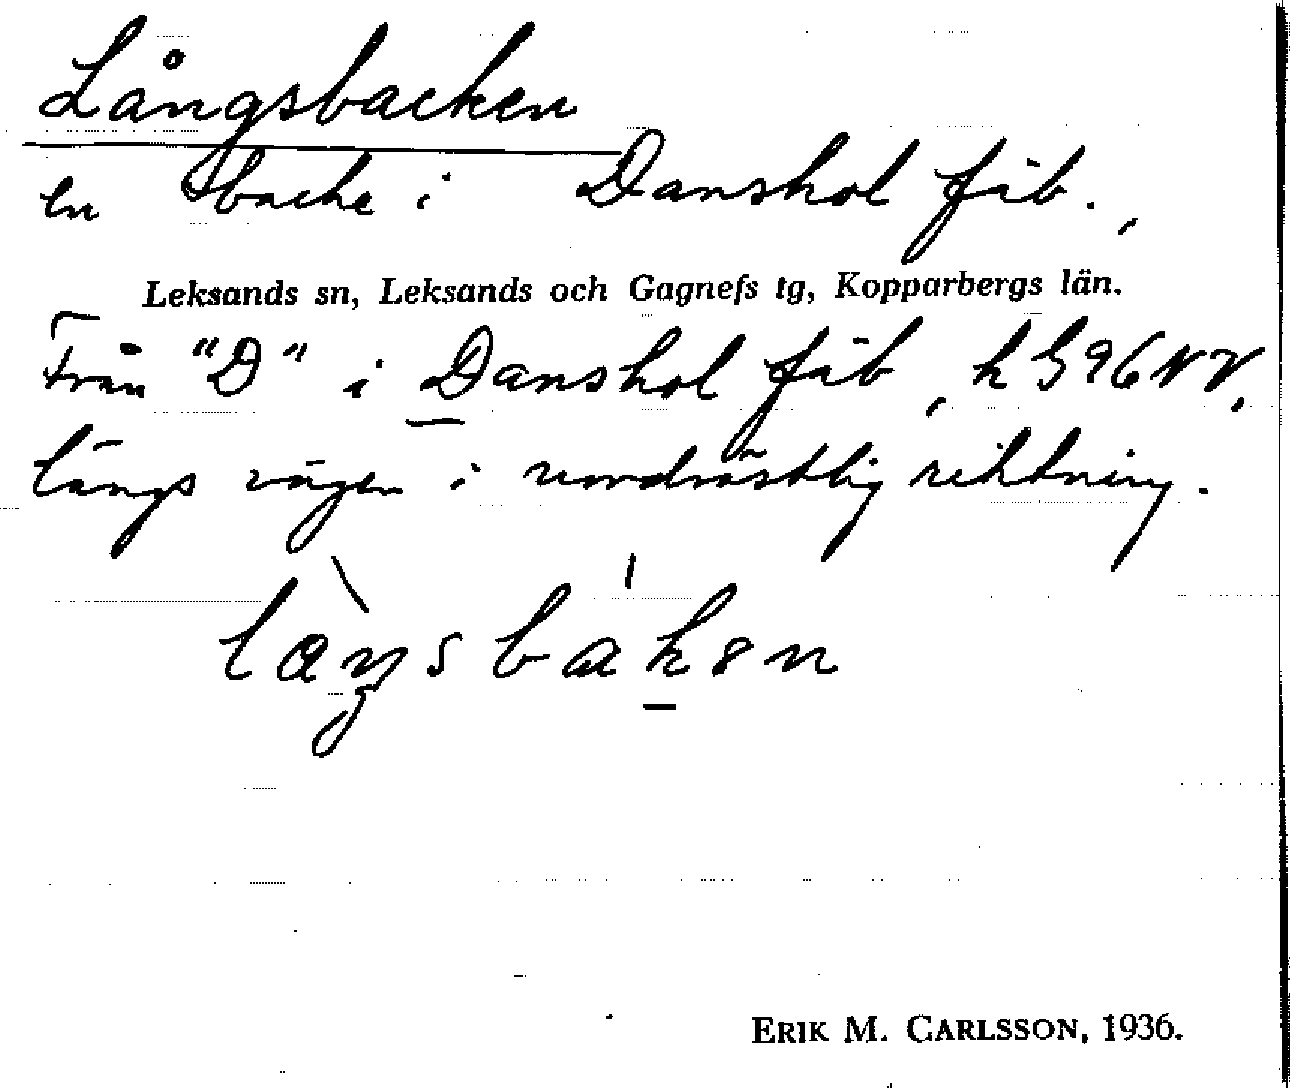 Långsbacken
en backe i Danshol fäb.,
Leksands sn, Leksands och Gagnefs tg, Kopparbergs län.
Från "D" i Danshol fäb, k G96NV,
längs vägen i nordvästlig riktning.
ERIK M. CARLSSON, 1936.